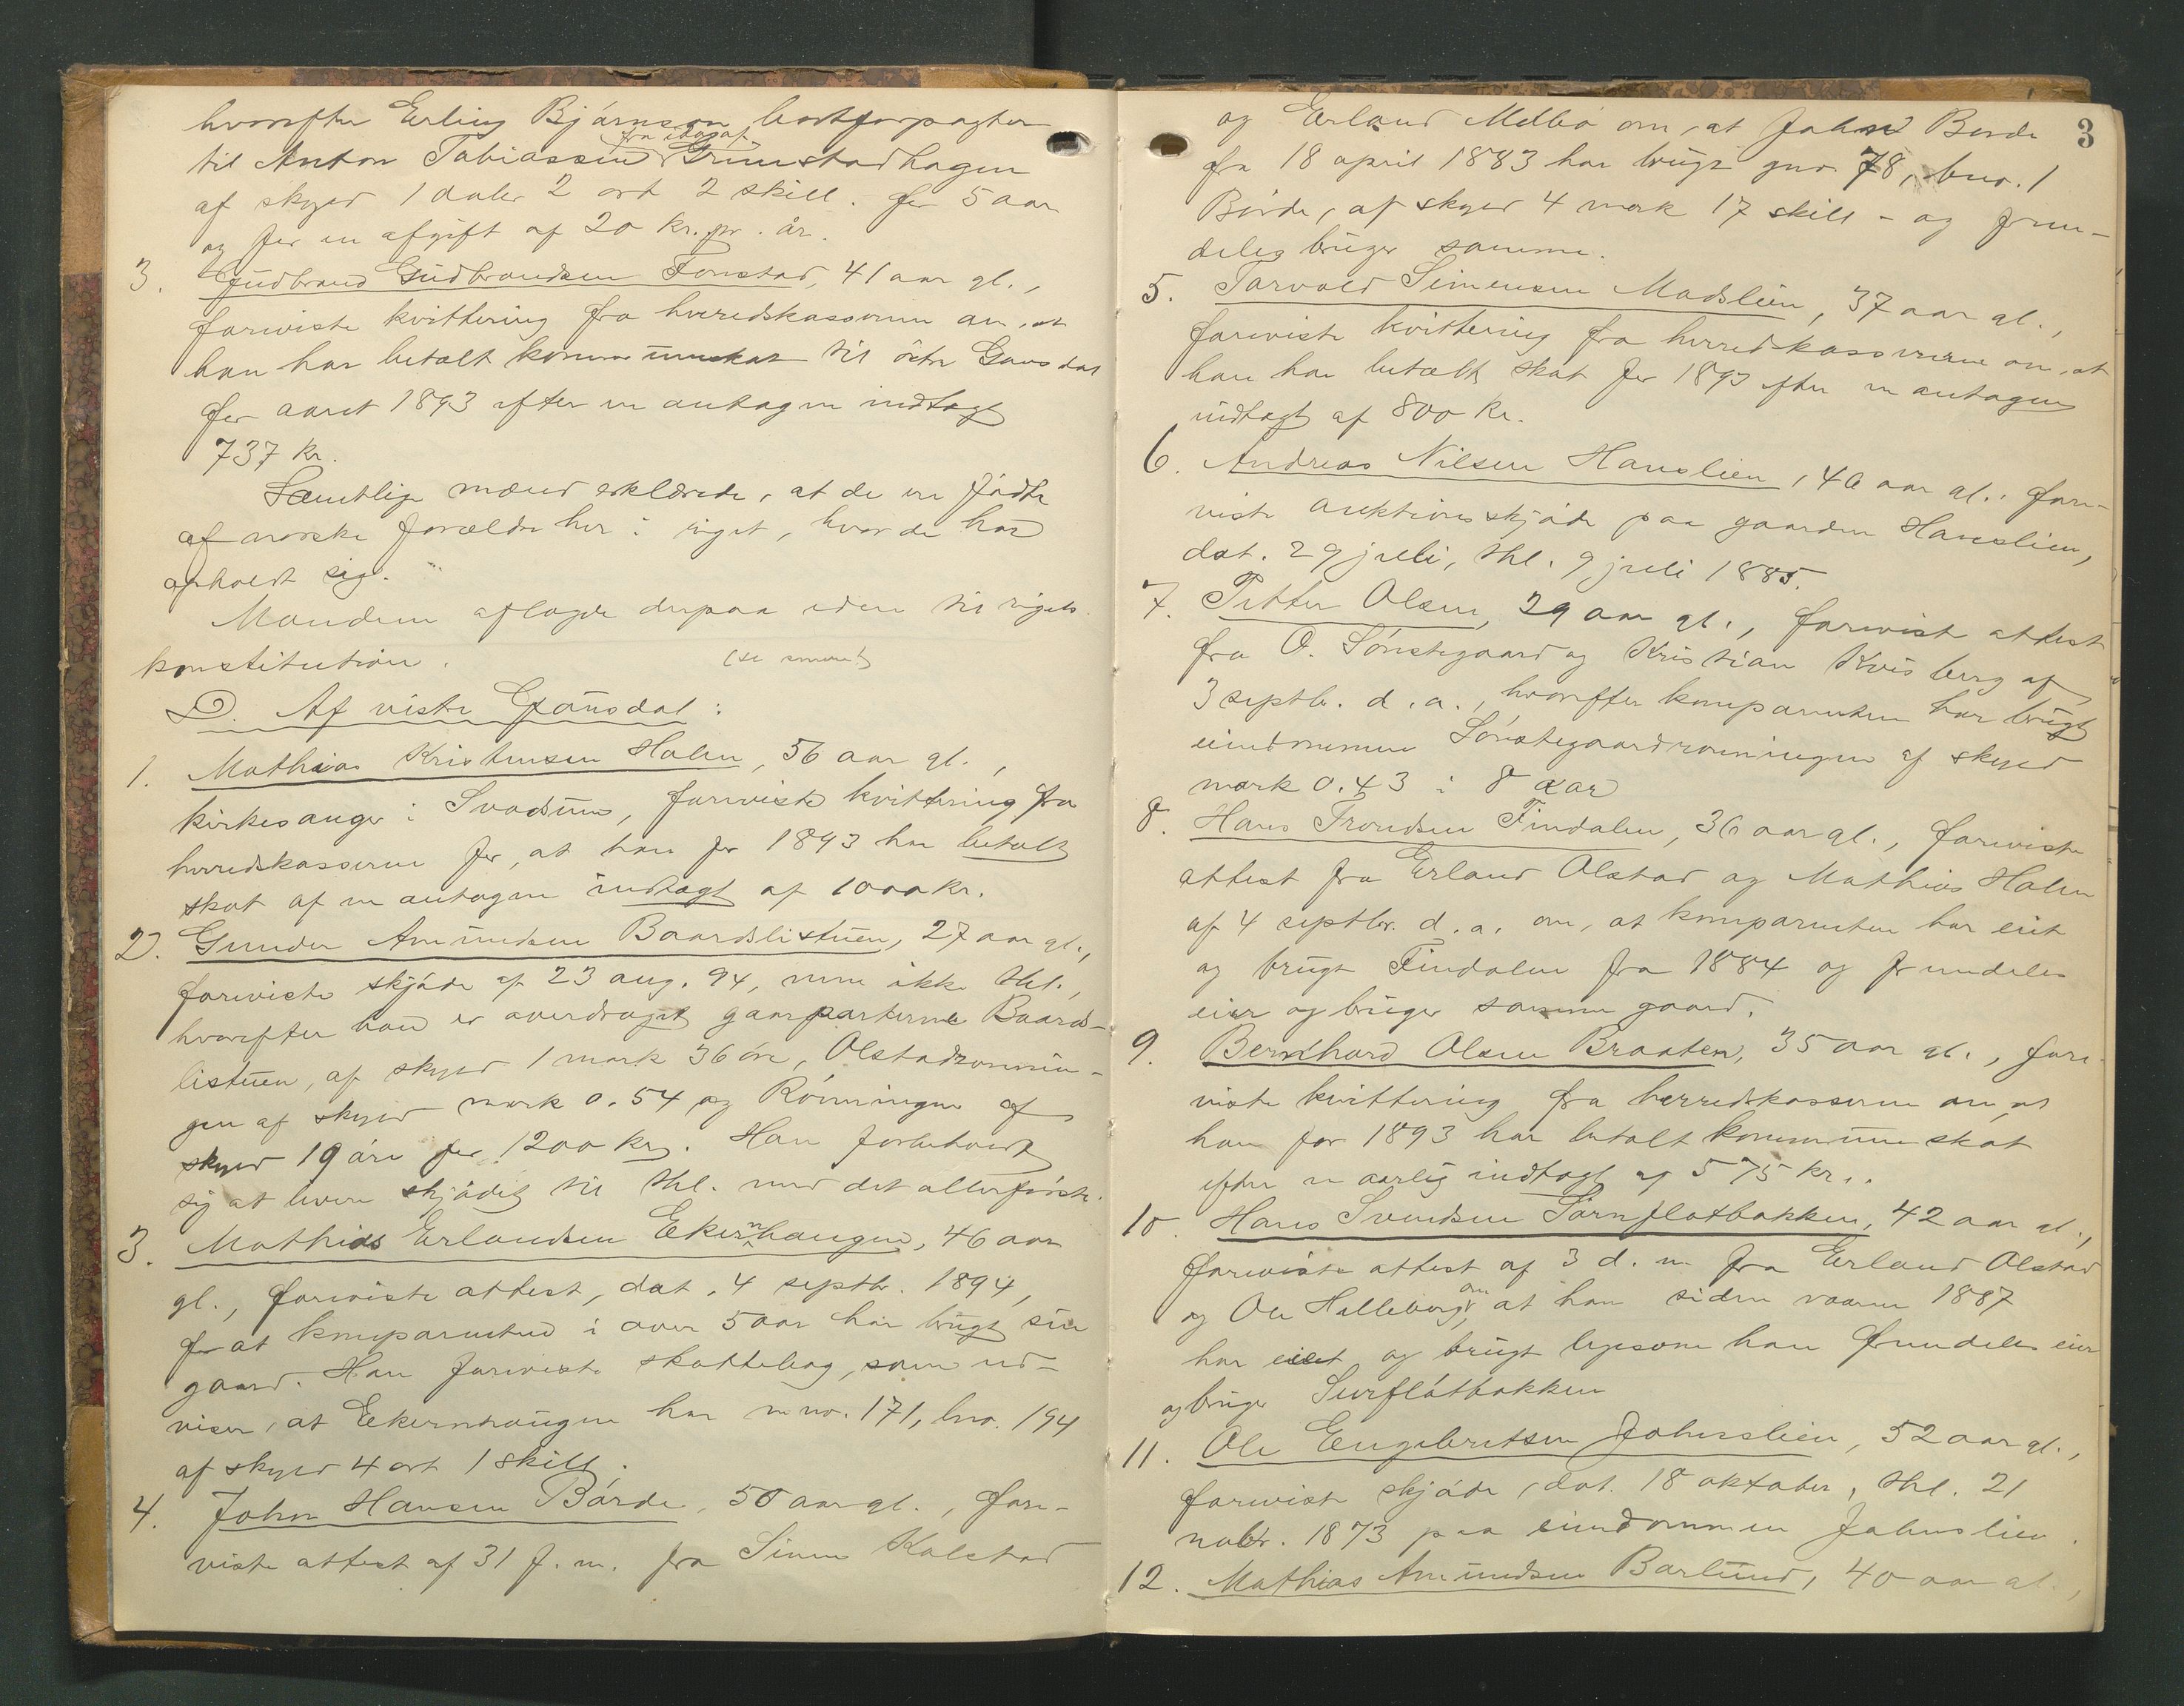 hvorefter Erling Bjørnson bortforpagter
fra idag af
til Anton Tobiassen Grimstadhagen
af skyld 1 daler 2 ort 2 skill. for 5 aar
og for en afgift af 20 kr. pr. år.
3. Gudbrand Gudbrandsen Fonstad, 41 aar gl.,
foreviste kvittering fra herredskassereren om, at
han har betalt kommuneskat til östre Gausdal
for aaret 1893 efter en antagen indtægt
737 kr.
Samtlige mænd erklærede, at de ere födte
af norske forældre her i riget, hvor de har
opholdt sig.
Mændene aflagde derpaa eden til rigets
konstitution.
D. Af vestre Gausdal:
1. Mathias Kristensen Holen, 56 aar gl.,
kirkesanger i Svadsum, foreviste kvittering fra
herredskassereren for, at han for 1893 har betalt
skat af en antagen indtægt af 1000 kr.
2. Gunder Amundsen Baardslistuen, 27 aar gl.,
foreviste skjöde af 23 aug. 94, men ikke thl.,
hvorefter ham er overdraget gaardparterne Baards-
listuen, af skyld 1 mark 36 öre, Olstadrönnin-
gen af skyld mark 0.54 og Rönningen af
skyld 19 öre for 1200 kr. Han forbeholdt
sig at levere skjödet til thl. med det allerförste.
3. Mathias Erlandsen Ekernhaugen, 46 aar
gl., foreviste attest, dat. 4 septbr. 1894,
for at komparenten i over 5 aar har brugt sin
gaard. Han foreviste skattebog, som ud-
viser, at Ekernhaugen har mno. 171, lno. 194
af skyld 4 ort 1 skill.
4. John Hansen Börde, 50 aar gl., fore-
viste attest af 31 f. m. fra Simen Kalstad
3
og Erland Melbö om, at John Börde
fra 18 april 1883 har brugt gno. 78, bno. 1
Börde, af skyld 4 mark 17 skill - og frem-
deles bruger samme.
5. Torvald Simensen Madslien, 37 aar gl.,
foreviste kvittering fra herredskassereren om, at
han har betalt skat for 1893 efter en antagen
indtægt af 800 kr.
6. Andreas Nilsen Hanslien, 40 aar gl., fore-
viste auktionsskjöde paa gaarden Hanslien,
dat. 29 juli, thl. 9 juli 1885.
7. Petter Olsen, 29 aar gl., foreviste attest
fra O. Sönstegaard og Kristian Kvisberg af
3 septbr. d. a., hvorefter komparenten har brugt
eiendommen Sönstegaardrönningen af skyld
mark 0.43 i 8 aar
8. Hans Trondsen Findalen, 36 aar gl., foreviste
attest fra Erland Olstad og Mathias Holen
af 4 septbr. d. a. om, at komparenten har eiet
og brugt Findalen fra 1884 og fremdeles
eier og bruger samme gaard.
9. Bernhard Olsen Braaten, 35 aar gl., fore-
viste kvittering fra herredskassereren om, at
han for 1893 har betalt kommuneskat
efter en aarlig indtægt af 575 kr..
10. Hans Svendsen Sörnflotbakken, 42 aar gl.,
foreviste attest af 3 d. m. fra Erland Olstad
og Ole Helleberg, om at han siden vaaren 1887
har eiet og brugt ligesom han fremdeles eier
og bruger Surflötbakken
11. Ole Engebretsen Johnslien, 52 aar gl.,
foreviste skjöde, dat. 18 oktober, thl. 21
nobr. 1873 paa eiendommen Johnslien.
12. Mathias Amundsen Barlund, 40 aar gl.,